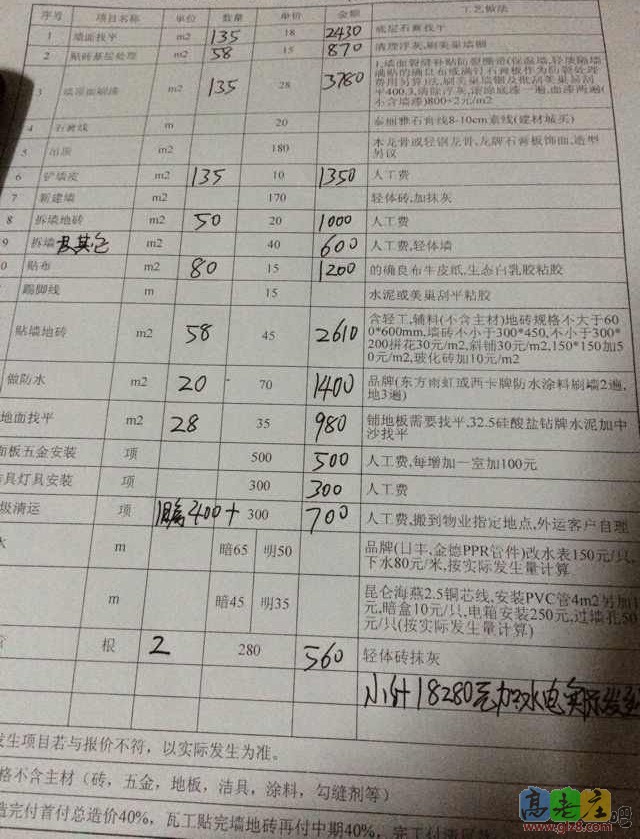 序号 项目名称 单位 数量 单价 金额 工艺做法
1 墙面找平 m2 135 18 2430 底层石膏找平
2 贴砖基层处理 m2 58 15 870 清理浮灰,刷美巢墙锢
3 墙顶面刷漆 m2 135 28 3780
平400,3,清除浮灰,滚涂底漆一遍,面漆两遍(
不含墙漆)800+2元/m2
4 石膏线 m 20 泰丽雅石膏线8-10cm素线(建材城买)
5 吊顶 m2 180 木龙骨或轻钢龙骨,龙牌石膏板饰面,造型
另议
6 铲墙皮 m2 135 10 1350 人工费
7 新建墙 m2 170 轻体砖,加抹灰
8 拆墙地砖 m2 50 20 1000 人工费
9 拆墙及其它 m2 40 600 人工费,轻体墙
0 贴布 m2 80 15 1200 的确良布牛皮纸,生态白乳胶粘胶
踢脚线 m 15 水泥或美巢刮平粘胶
贴墙地砖 m2 58 45 2610 含轻工,辅料(不含主材)地砖规格不大于60
0*600mm,墙砖不小于300*450,不小于300*
200拼花30元/m2,斜铺30元/m2,150*150加5
0元/m2,玻化砖加10元/m2
做防水 m2 20 70 1400 品牌(东方雨虹或西卡牌防水涂料刷墙2遍,
地3遍)
地面找平 m2 28 35 980 铺地板需要找平,32.5硅酸盐钻牌水泥加中
沙找平
面板五金安装 项 500 500 人工费,每增加一室加100元
洁具灯具安装 项 300 300 人工费
圾清运 项 隔400+ 300 700 人工费,搬到物业指定地点,外运客户自理
水 m 暗65 明50 品牌(日丰,金德PPR管件)改水表150元/只,
下水80元/米,按实际发生量计算
m 暗45 明35 昆仑海燕2.5铜芯线,安装PVC管4m2另加1
元,暗盒10元/只,电箱安装250元,过墙孔50
元/只(按实际发生量计算)
管 根 2 280 560 轻体砖抹灰
小计18280元加水电实际发生
发生项目若与报价不符,以实际发生为准。
格不含主材(砖,五金,地板,洁具,涂料,勾缝剂等)
造完付首付总造价40%,瓦工贴完墙地砖再付中期40%,完工付
高老庄吧
www.glz8.com